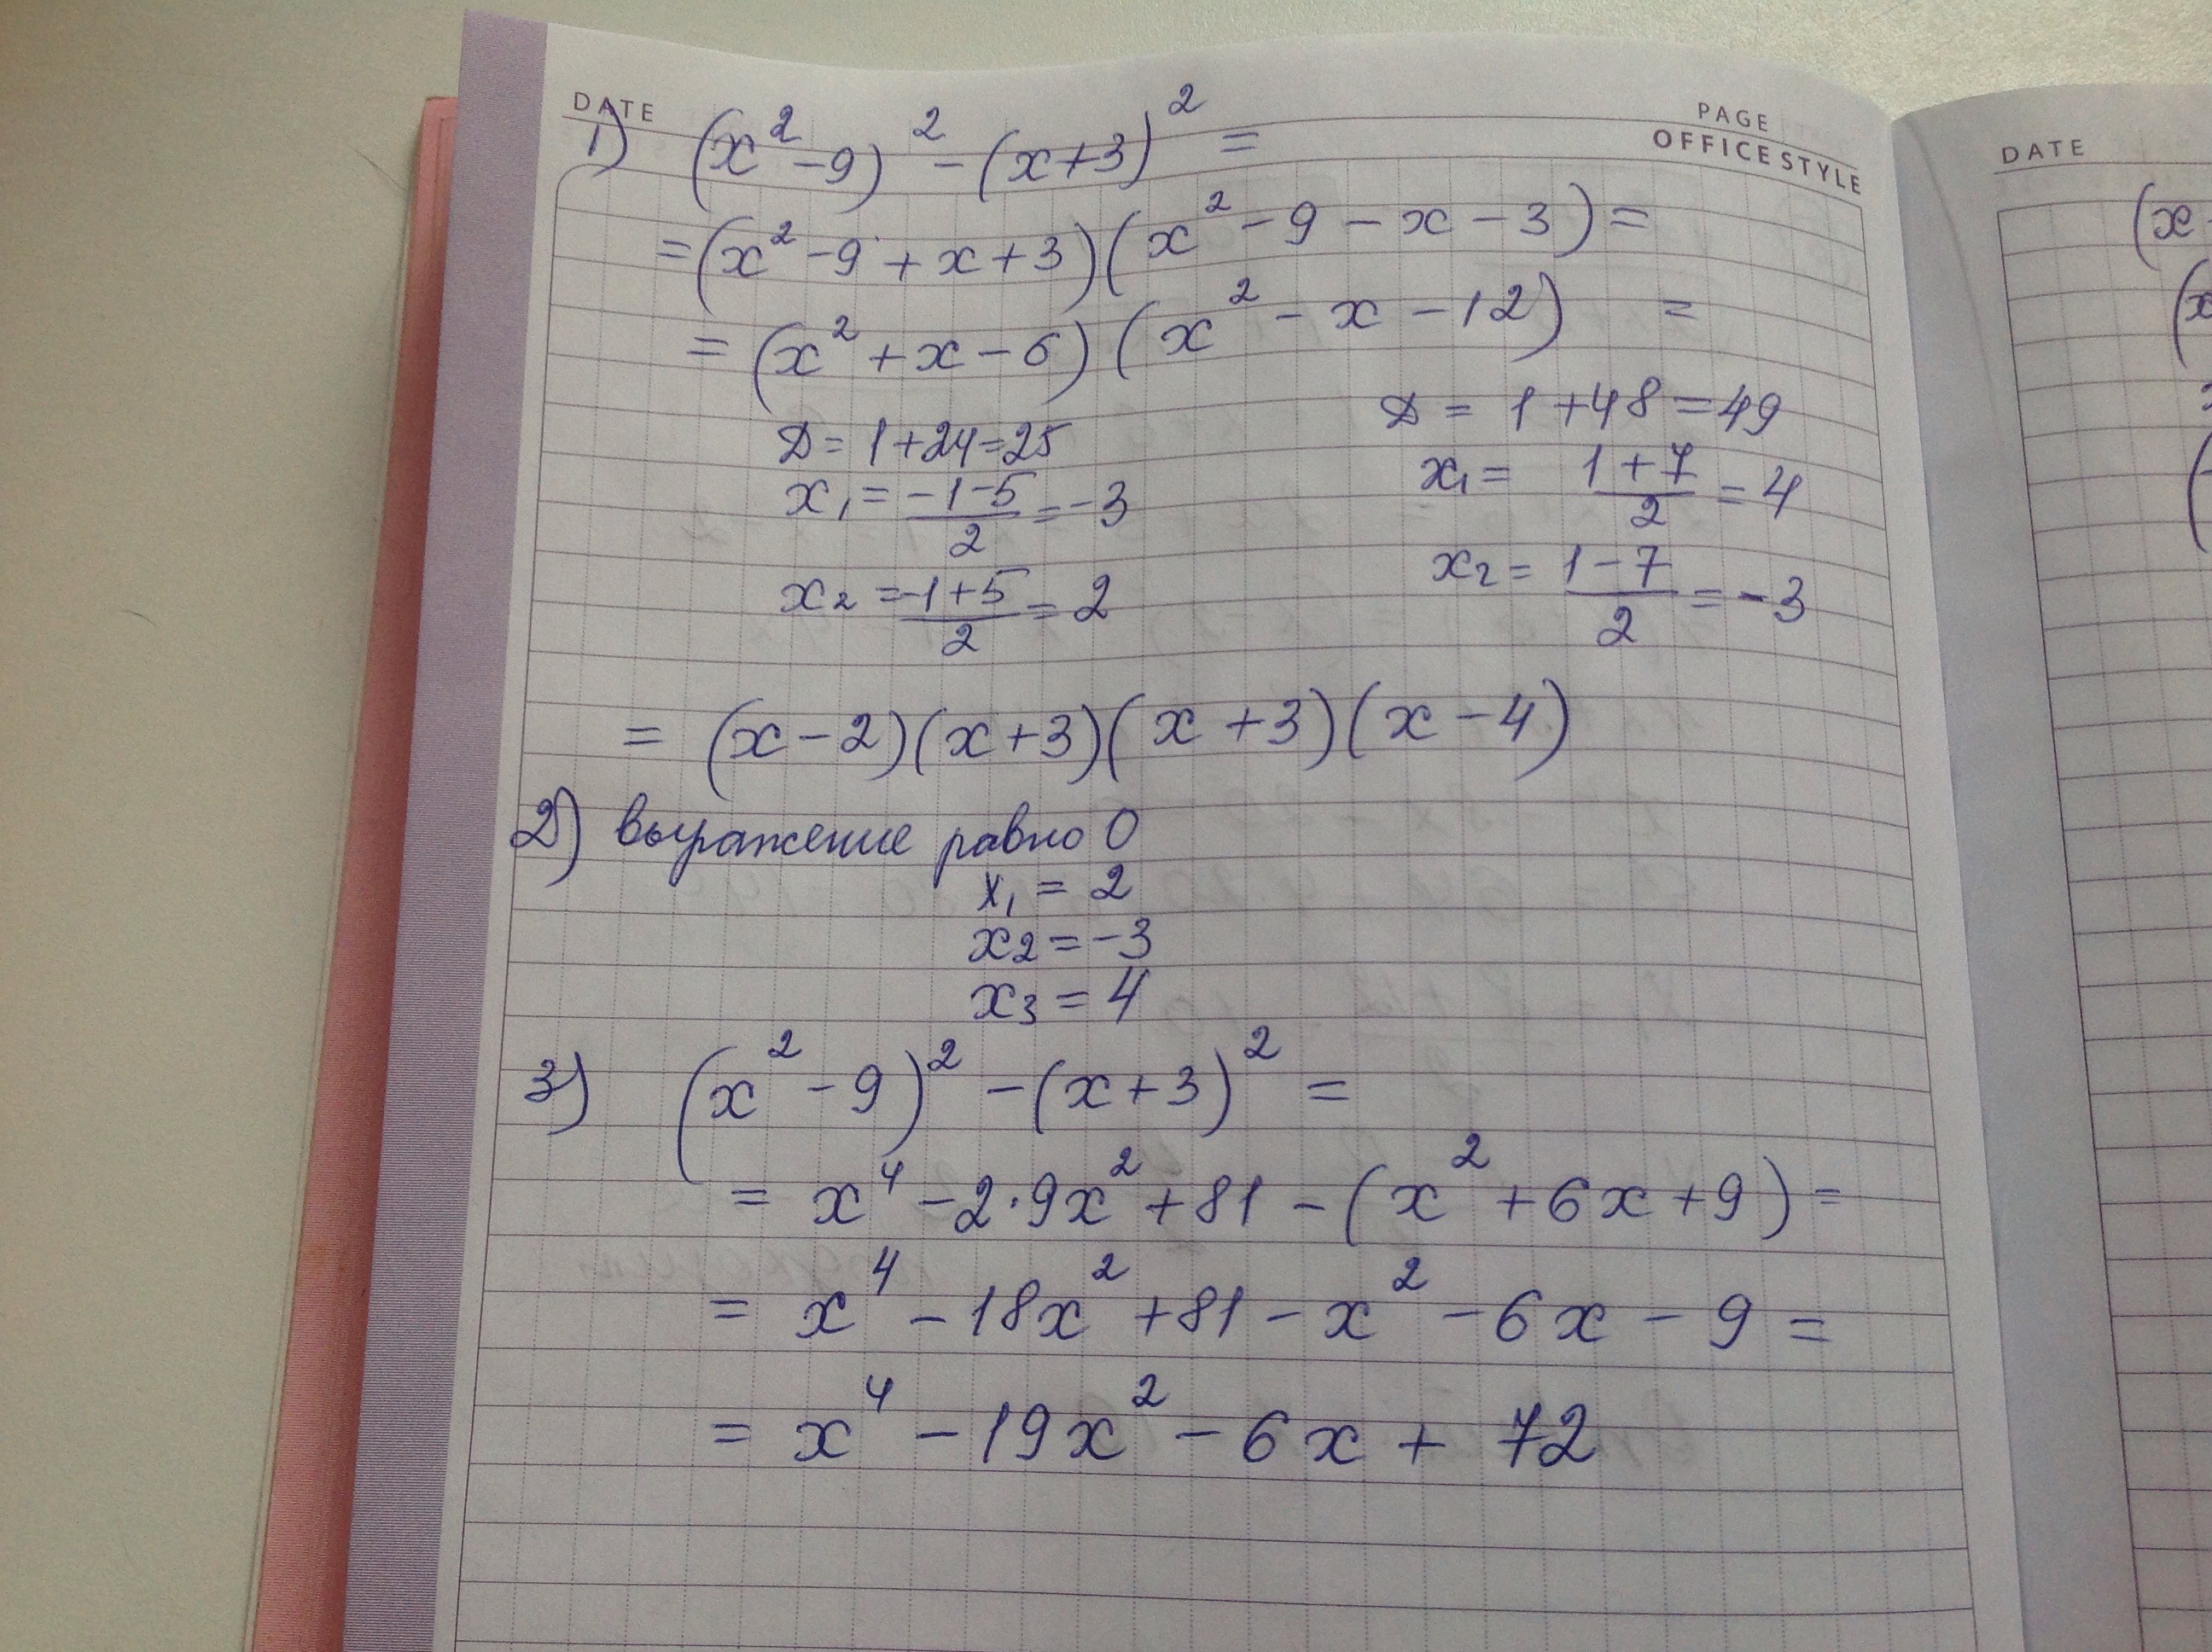 DATE
PAGE
OFFICE STYLE
1) (x² - 9)² - (x + 3)² =
= (x² - 9 + x + 3)(x² - 9 - x - 3) =
= (x² + x - 6)(x² - x - 12) =
D = 1 + 24 = 25
x₁ = (-1 - 5)/2 = -3
x₂ = (-1 + 5)/2 = 2
D = 1 + 48 = 49
x₁ = (1 + 7)/2 = 4
x₂ = (1 - 7)/2 = -3
= (x - 2)(x + 3)(x + 3)(x - 4)
2) выражение равно 0
x₁ = 2
x₂ = -3
x₃ = 4
3) (x² - 9)² - (x + 3)² =
= x⁴ - 2·9x² + 81 - (x² + 6x + 9) =
= x⁴ - 18x² + 81 - x² - 6x - 9 =
= x⁴ - 19x² - 6x + 72
DATE
(x
(x